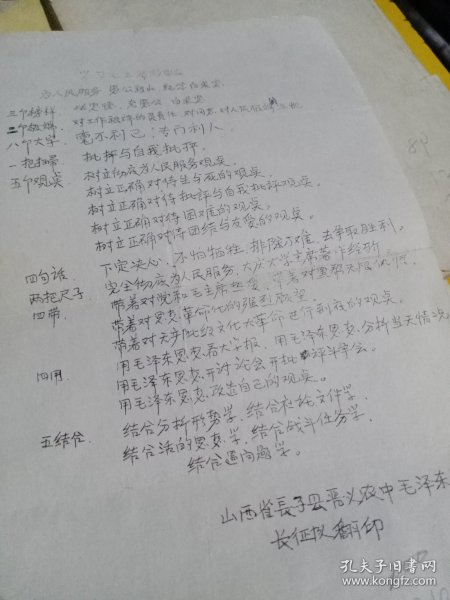 为人民服务 愚公移山 纪念白求恩
三个榜样 张思德 老愚公 白求恩
二个极端 对工作极端的负责任 对同志、对人民极端
八个大字 毫不利己,专门利人
一把扫帚 批评与自我批评。
五个观点 树立彻底为人民服务观点。
树立正确对待生与死的观点。
树立正确对待批评与自我批评观点。
树立正确对待困难的观点。
树立正确对待团结与友爱的观点。
四句话 下定决心,不怕牺牲,排除万难,去争取胜利。
两把尺子 完全彻底为人民服务,
四带 带着对党和毛主席热爱,带着对
带着对思想革命化的强烈愿望。
带着对无产阶级文化大革命
四用 用毛泽东思想看大字报,用毛泽东思想分析当天情况
用毛泽东思想开讨论会开批评斗争会。
用毛泽东思想改造自己的观点。
五结合 结合分析形势学,结合社论文件学,
结合活的思想学,结合战斗任务学,
结合 问题学。
山西省長子县 农中毛泽东
长征队翻印
孔夫子旧书网
www.kongfz.com